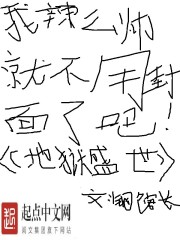 我辣么帅
就不用封
面了吧！
《地狱盛世》
文渊馆长
起 起点中文网
阅文集团旗下网站